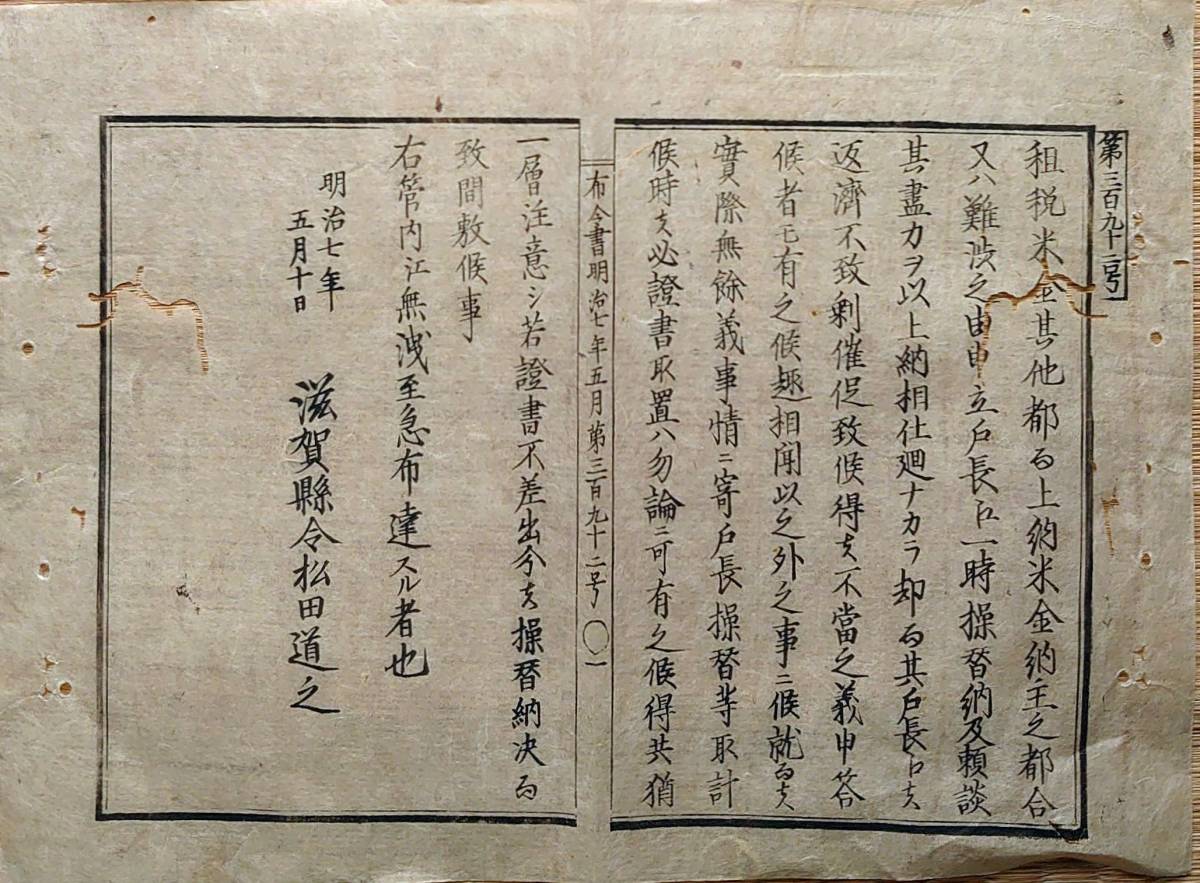 第三百九十二号
租税米金其他都而上納米金納主之都合
又ハ難渋之由申立戸長ゟ一時操替納及頼談
其盡力ヲ以上納相仕廻ナカラ却而其戸長ゟ者
返済不致剰催促致候得者不當之義申答
候者モ有之候趣相聞以之外之事ニ候就而者
實際無餘義事情ニ寄戸長操替等取計
候時者必證書取置ハ勿論ニ可有之候得共猶
布令書明治七年五月第三百九十二号〇一
一層注意シ若證書不差出分者操替納决而
致間敷候事
右管内江無洩至急布達スル者也
明治七年
五月十日
滋賀縣令松田道之